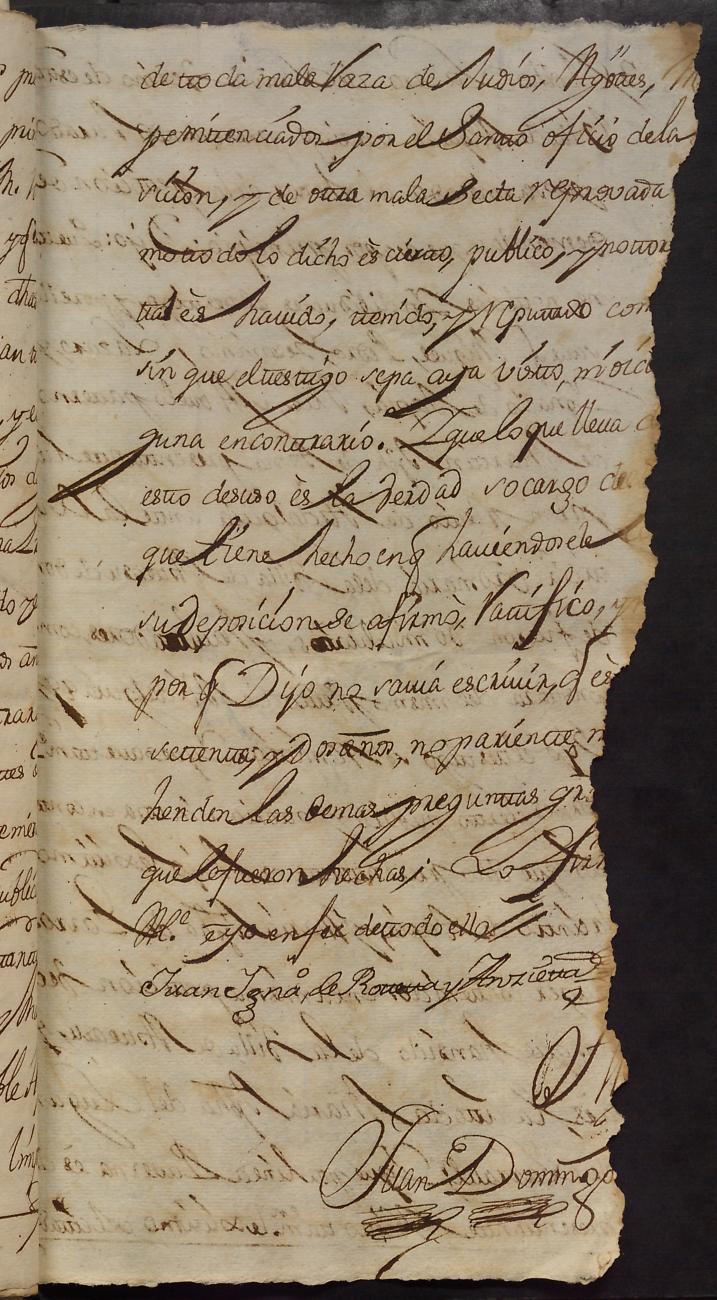 de toda mala Raza de Judios, Agotes, M
penitenciados por el Santo oficio de la
sicion, y de otra mala Secta reprovada
mo todo lo dicho ès cierto, publico, y notor
tal ès havido, tenido, y reputado com
sin que el testigo sepa aya visto, ni oid
guna en contrario. Y que lo que lleva
esto desuso ès la verdad so cargo del
que tiene hecho en q haviendosele
su deposicion se afirmò, Ratifico, y
por q Dijo no savia escrivir, q ès
settenta, y Dos años, no pariente n
henden las demas preguntas g
que le fueron hechas; Lo fir
M.e e yo en feè de todo ello
Juan Ign.o de Roteta y Anzieta
Juan Domingo